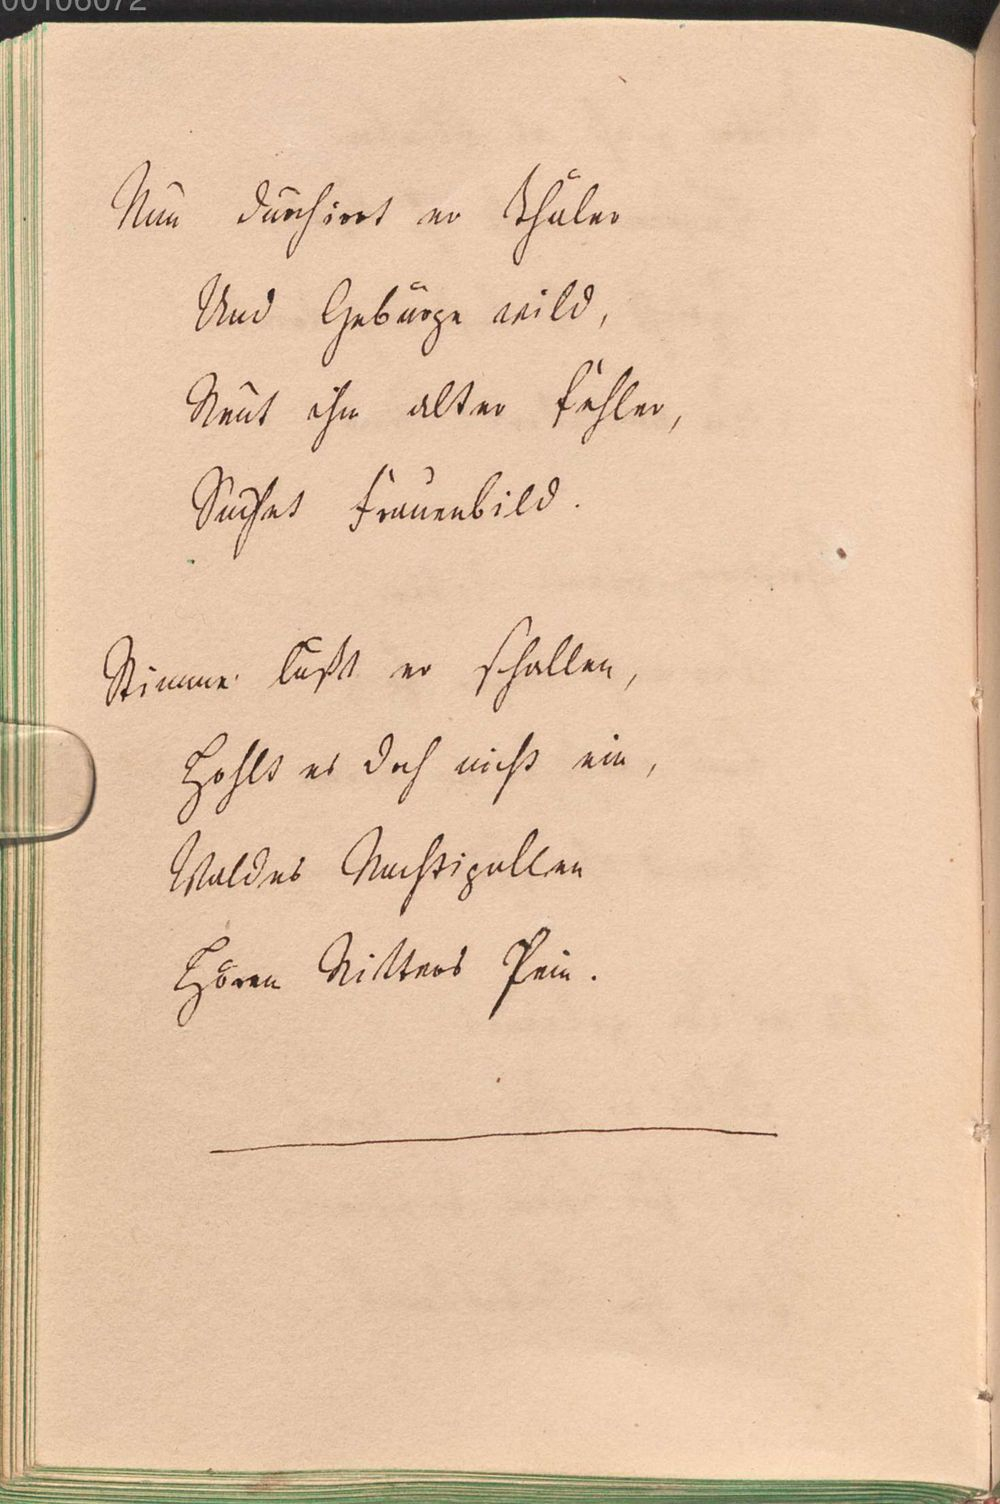 00106072
Nun durchirrt er Thäler
Und Gebürge wild,
Neut ihn alter Fehler,
Suchet Frauenbild.
Stimme läßt er schallen,
Hohlt es doch nicht ein,
Waldes Nachtigallen
Hören Ritters Pein.